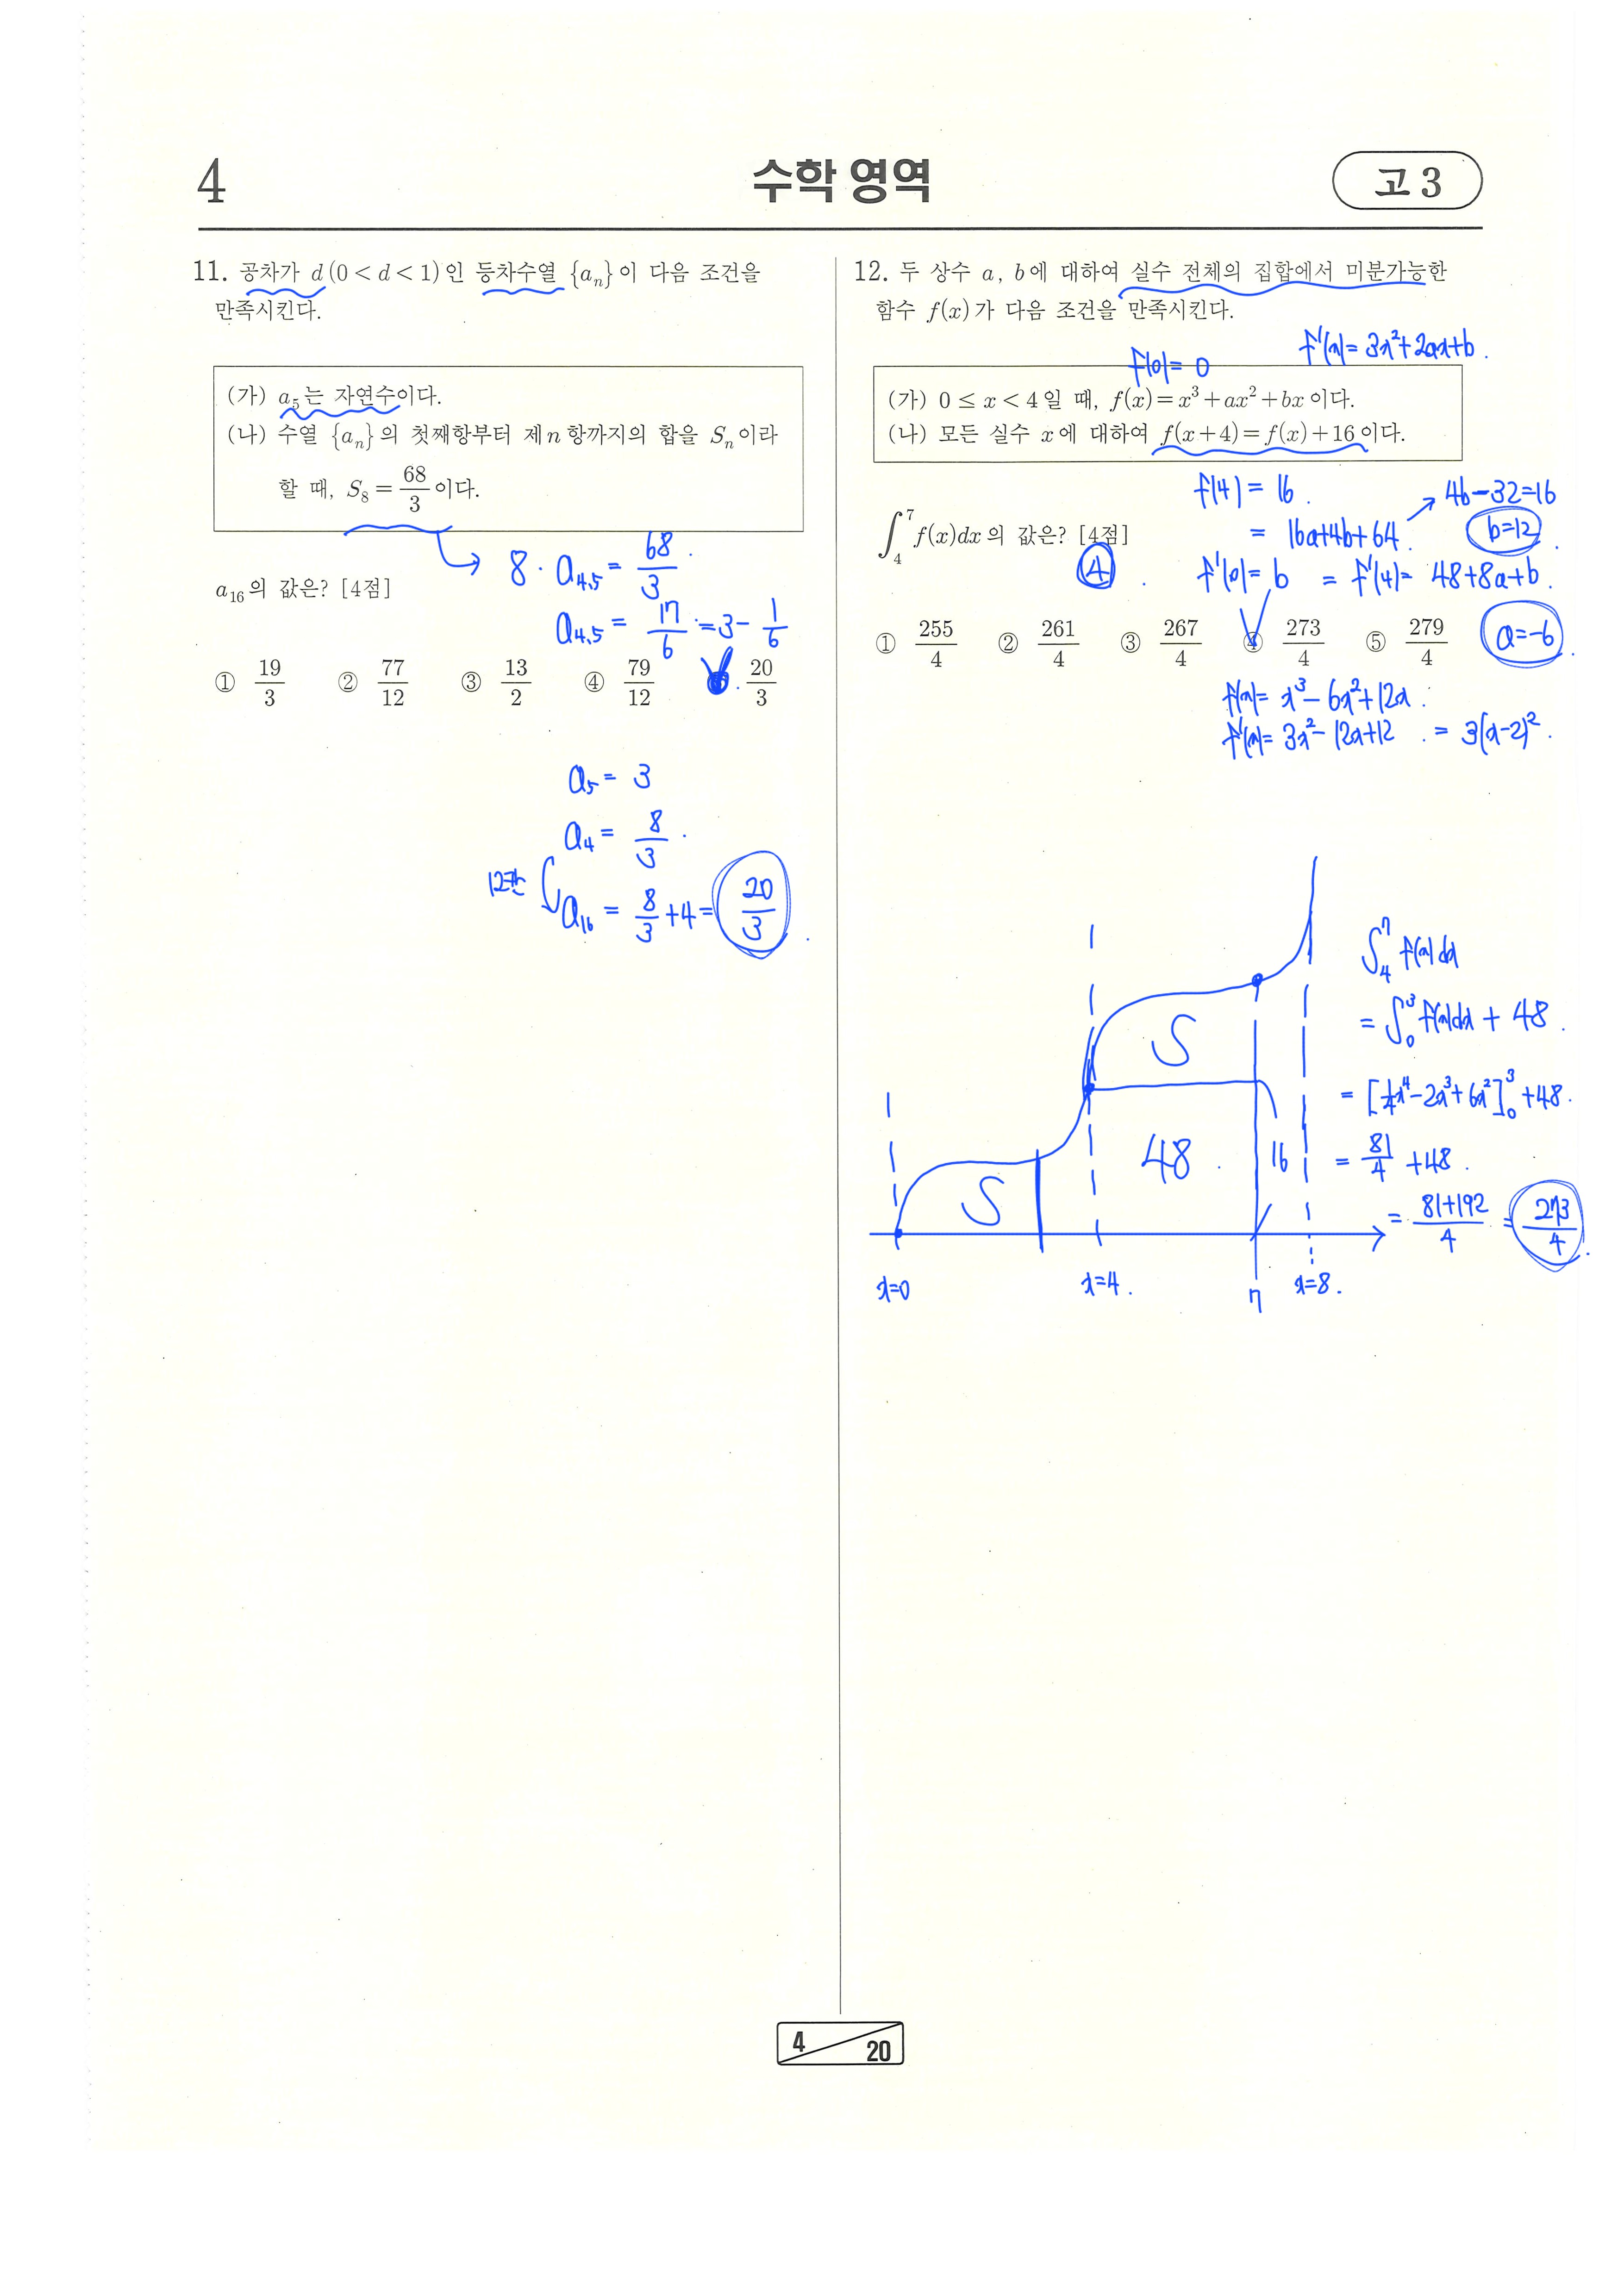 4
수학 영역
고 3
11. 공차가 d (0 < d < 1)인 등차수열 {aₙ}이 다음 조건을
만족시킨다.
(가) a₅는 자연수이다.
(나) 수열 {aₙ}의 첫째항부터 제n항까지의 합을 Sₙ이라
할 때, S₈ = 68/3 이다.
8 · a₄.₅ = 68/3 .
a₁₆의 값은? [4점]
a₄.₅ = 17/6 = 3 - 1/6
① 19/3 ② 77/12 ③ 13/2 ④ 79/12 ⑤ 20/3
a₅ = 3
a₄ = 8/3 .
12칸
a₁₆ = 8/3 + 4 = 20/3 .
12. 두 상수 a, b에 대하여 실수 전체의 집합에서 미분가능한
함수 f(x)가 다음 조건을 만족시킨다.
f(0) = 0
f'(x) = 3x² + 2ax + b .
(가) 0 ≤ x < 4일 때, f(x) = x³ + ax² + bx이다.
(나) 모든 실수 x에 대하여 f(x+4) = f(x) + 16이다.
f(4) = 16 .
4b - 32 = 16
= 16a + 4b + 64 .
b = 12 .
∫₄⁷ f(x)dx의 값은? [4점]
④ .
f'(0) = b = f'(4) = 48 + 8a + b .
① 255/4 ② 261/4 ③ 267/4 ④ 273/4 ⑤ 279/4
a = -6 .
f(x) = x³ - 6x² + 12x .
f'(x) = 3x² - 12x + 12 . = 3(x-2)² .
∫₄⁷ f(x)dx
= ∫₀³ f(x)dx + 48 .
= [1/4 x⁴ - 2x³ + 6x²]₀³ + 48 .
= 81/4 + 48 .
= (81+192)/4 = 273/4 .
S
S
48 .
16
x=0
x=4 .
7
x=8 .
4
20